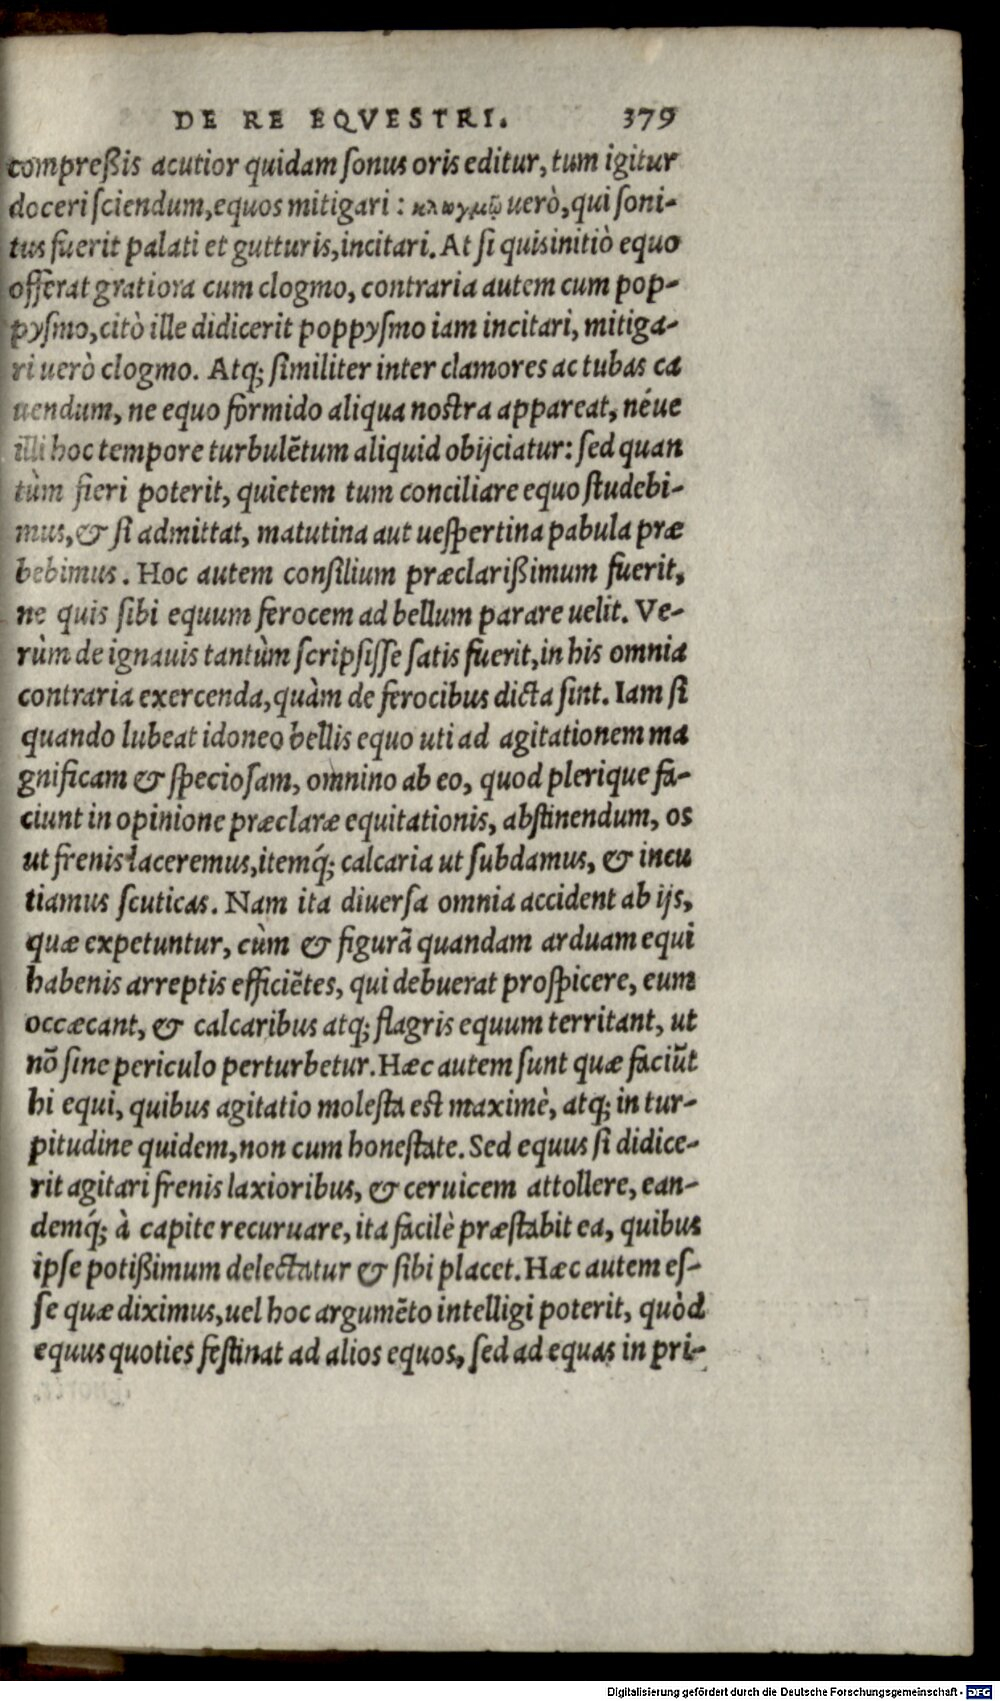 DE RE EQVESTRI. 379
compreßis acutior quidam ſonus oris editur, tum igitur
doceri ſciendum, equos mitigari: κλωγμῷ uerò, qui ſoni-
tus fuerit palati et gutturis, incitari. At ſi quis initiò equo
offerat gratiora cum clogmo, contraria autem cum pop-
pyſmo, citò ille didicerit poppyſmo iam incitari, mitiga-
ri uerò clogmo. Atq; ſimiliter inter clamores ac tubas ca
uendum, ne equo formido aliqua noſtra appareat, néue
illi hoc tempore turbulẽtum aliquid obijciatur: ſed quan
tùm fieri poterit, quietem tum conciliare equo ſtudebi-
mus, & ſi admittat, matutina aut ueſpertina pabula præ
bebimus. Hoc autem conſilium præclarißimum fuerit,
ne quis ſibi equum ferocem ad bellum parare uelit. Ve-
rùm de ignauis tantùm ſcripſiſſe ſatis fuerit, in his omnia
contraria exercenda, quàm de ferocibus dicta ſint. Iam ſi
quando lubeat idoneo bellis equo uti ad agitationem ma
gnificam & ſpecioſam, omnino ab eo, quod plerique fa-
ciunt in opinione præclaræ equitationis, abſtinendum, os
ut frenis laceremus, itemq́; calcaria ut ſubdamus, & incu
tiamus ſcuticas. Nam ita diuerſa omnia accident ab ijs,
quæ expetuntur, cùm & figurã quandam arduam equi
habenis arreptis efficiẽtes, qui debuerat proſpicere, eum
occæcant, & calcaribus atq; flagris equum territant, ut
nõ ſine periculo perturbetur. Hæc autem ſunt quæ faciũt
hi equi, quibus agitatio moleſta eſt maximè, atq; in tur-
pitudine quidem, non cum honeſtate. Sed equus ſi didice-
rit agitari frenis laxioribus, & ceruicem attollere, ean-
demq́; à capite recuruare, ita facilè præſtabit ea, quibus
ipſe potißimum delectatur & ſibi placet. Hæc autem eſ-
ſe quæ diximus, uel hoc argumẽto intelligi poterit, quòd
equus quoties feſtinat ad alios equos, ſed ad equas in pri-
Digitalisierung gefördert durch die Deutsche Forschungsgemeinschaft - DFG